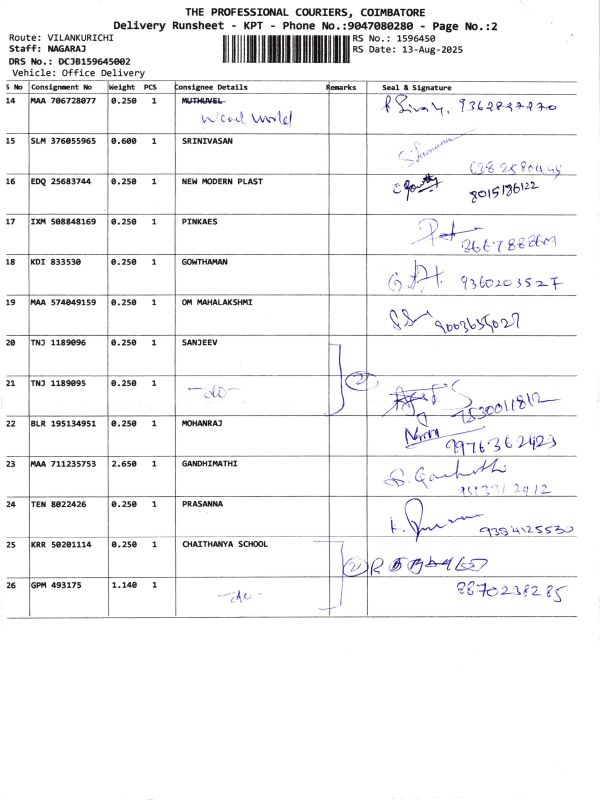 THE PROFESSIONAL COURIERS, COIMBATORE
Delivery Runsheet - KPT - Phone No.:9047080280 - Page No.:2
Route: VILANKURICHI
RS No.: 1596450
Staff: NAGARAJ
RS Date: 13-Aug-2025
DRS No.: DCJB159645002
Vehicle: Office Delivery
S No Consignment No Weight PCS Consignee Details Remarks Seal & Signature
14 MAA 706728077 0.250 1 MUTHUVEL
World
15 SLM 376055965 0.600 1 SRINIVASAN
16 EDQ 25683744 0.250 1 NEW MODERN PLAST
8015186122
17 IXM 508848169 0.250 1 PINKAES
18 KDI 833530 0.250 1 GOWTHAMAN
9360203527
19 MAA 574049159 0.250 1 OM MAHALAKSHMI
9003655027
20 TNJ 1189096 0.250 1 SANJEEV
21 TNJ 1189095 0.250 1 -do- (2)
7530011812
22 BLR 195134951 0.250 1 MOHANRAJ
9976362423
23 MAA 711235753 2.650 1 GANDHIMATHI
24 TEN 8022426 0.250 1 PRASANNA
9354125530
25 KRR 50201114 0.250 1 CHAITHANYA SCHOOL (2)
26 GPM 493175 1.140 1 -do- 8870238285